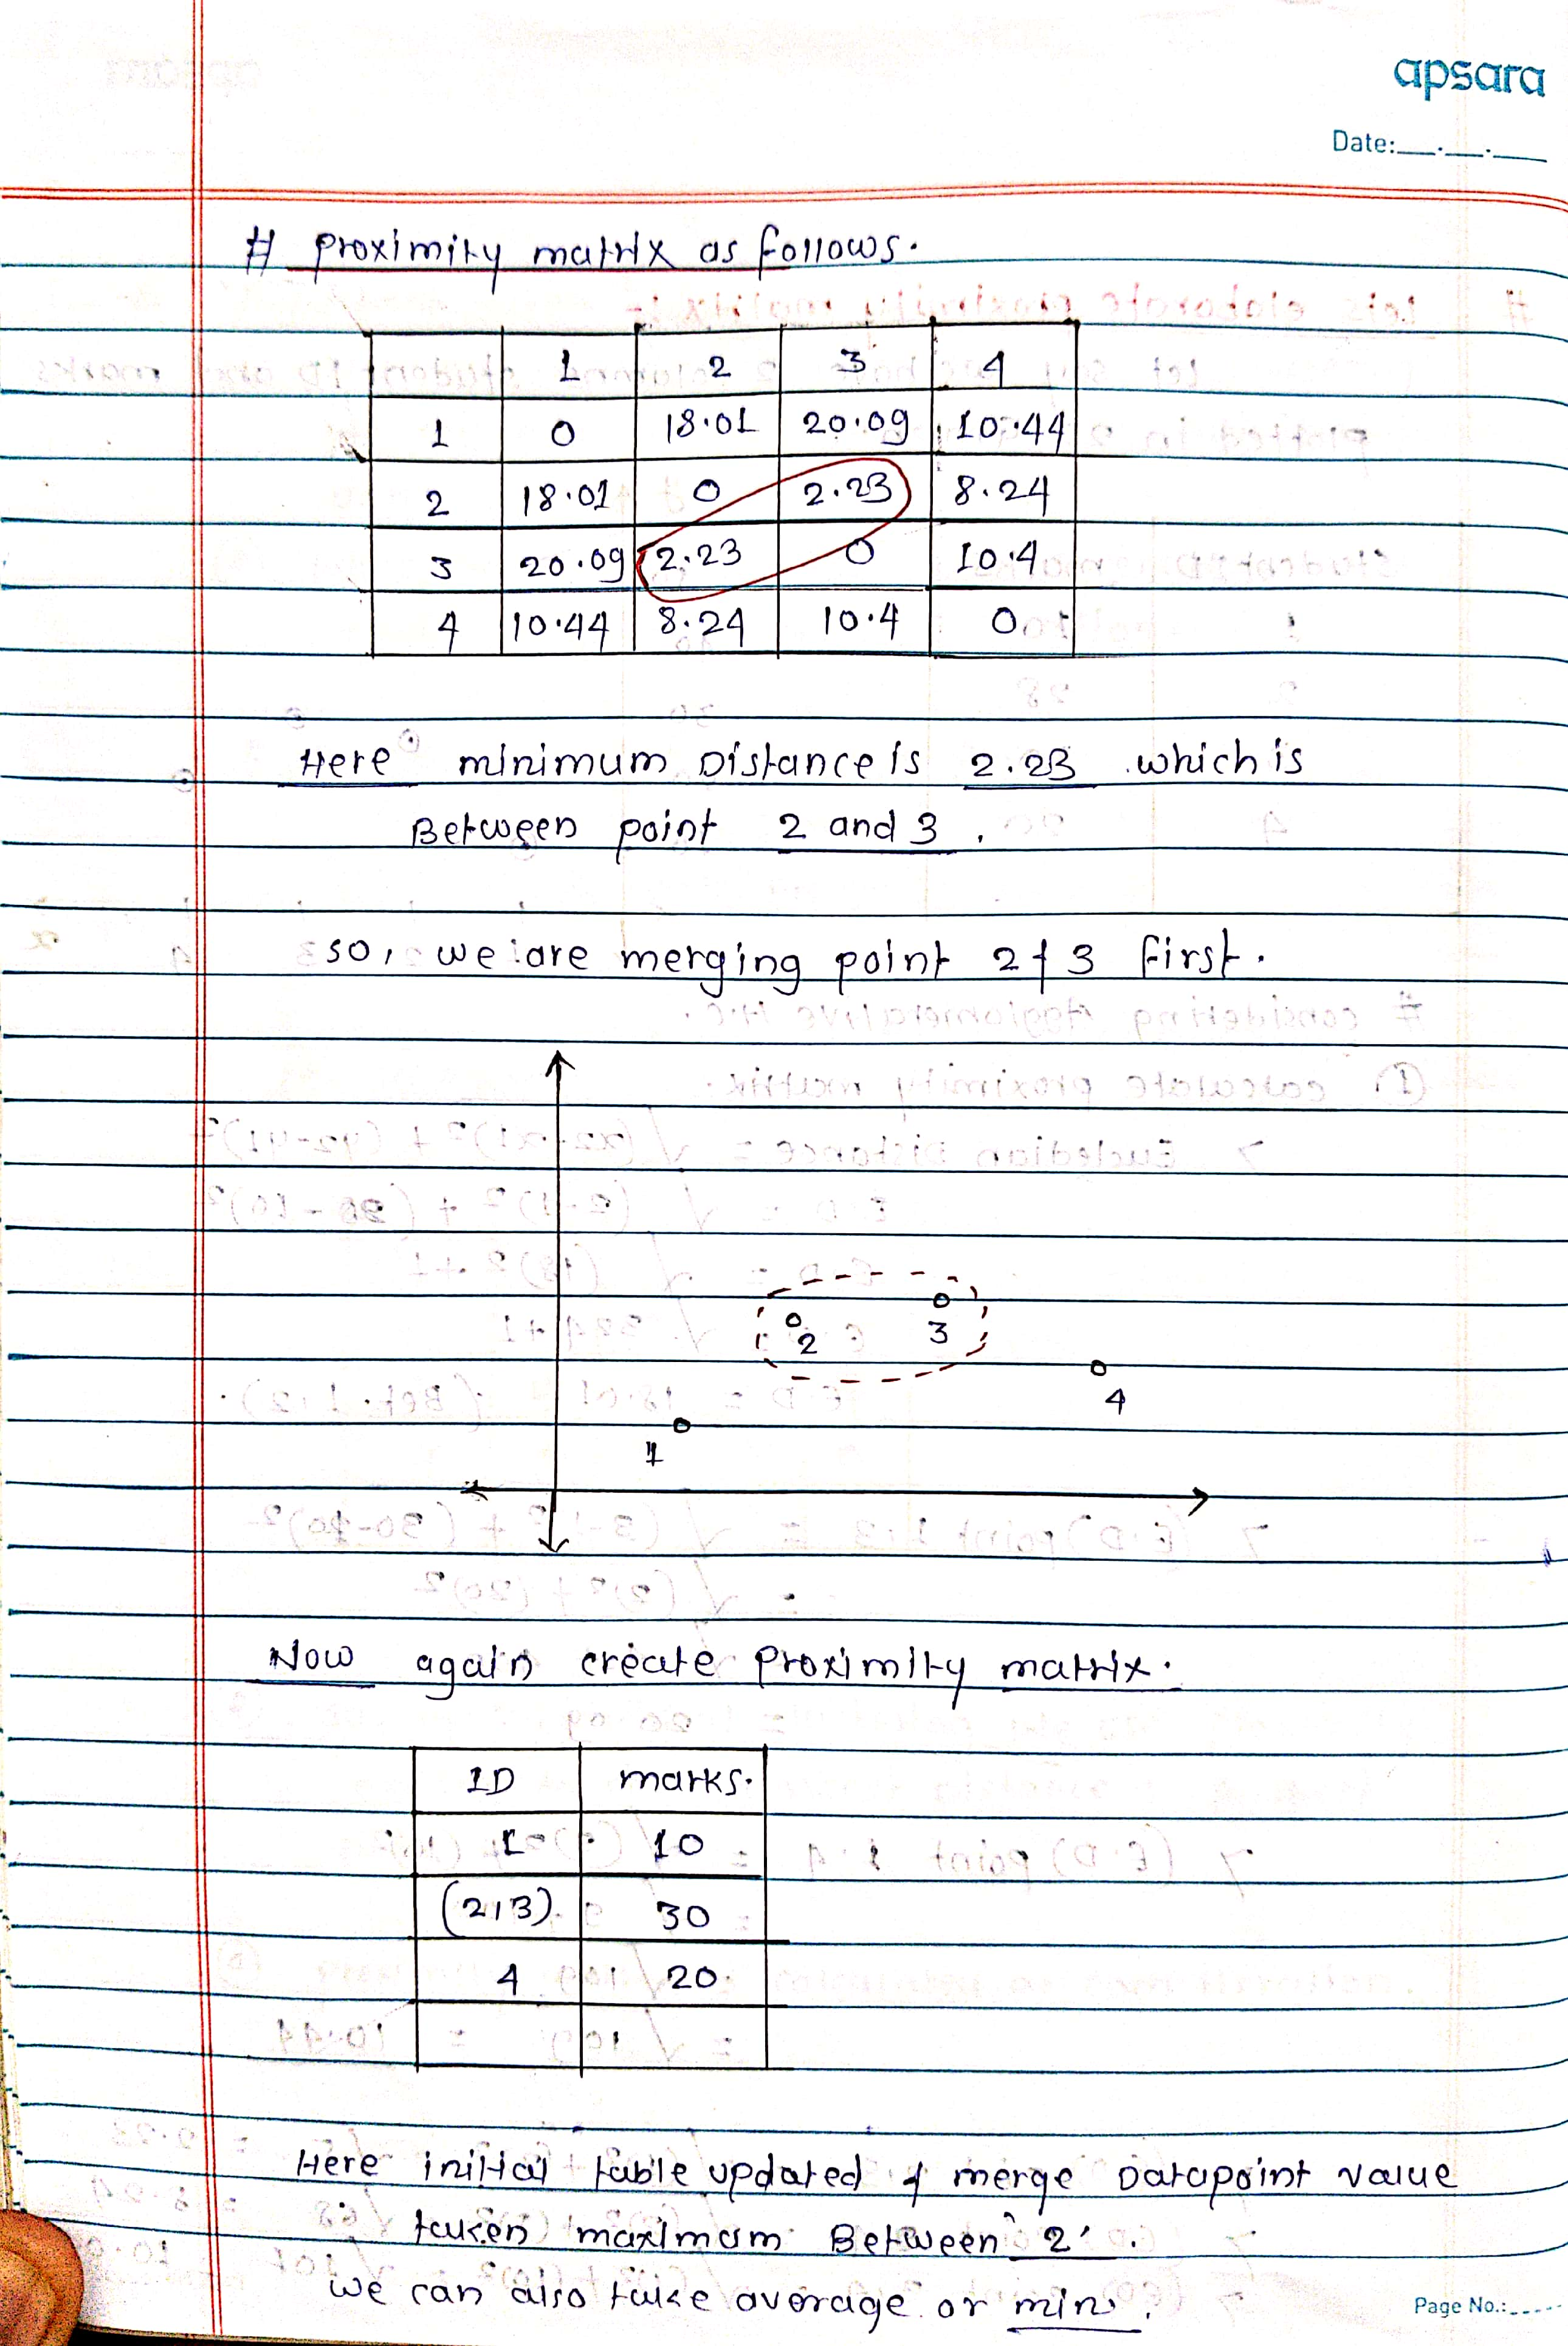 apsara
Date:__.__.__
# proximity matrix as follows.
1 2 3 4
1 0 18.01 20.09 10.44
2 18.01 0 2.23 8.24
3 20.09 2.23 0 10.4
4 10.44 8.24 10.4 0
Here minimum Distance is 2.23 which is
Between point 2 and 3 .
so, we are merging point 2 & 3 first.
2 3
4
1
Now again create proximity matrix.
ID marks.
1 10
(2,3) 30
4 20
Here initial table updated & merge Datapoint value
taken maximum Between 2 .
we can also take average or min .
Page No.: